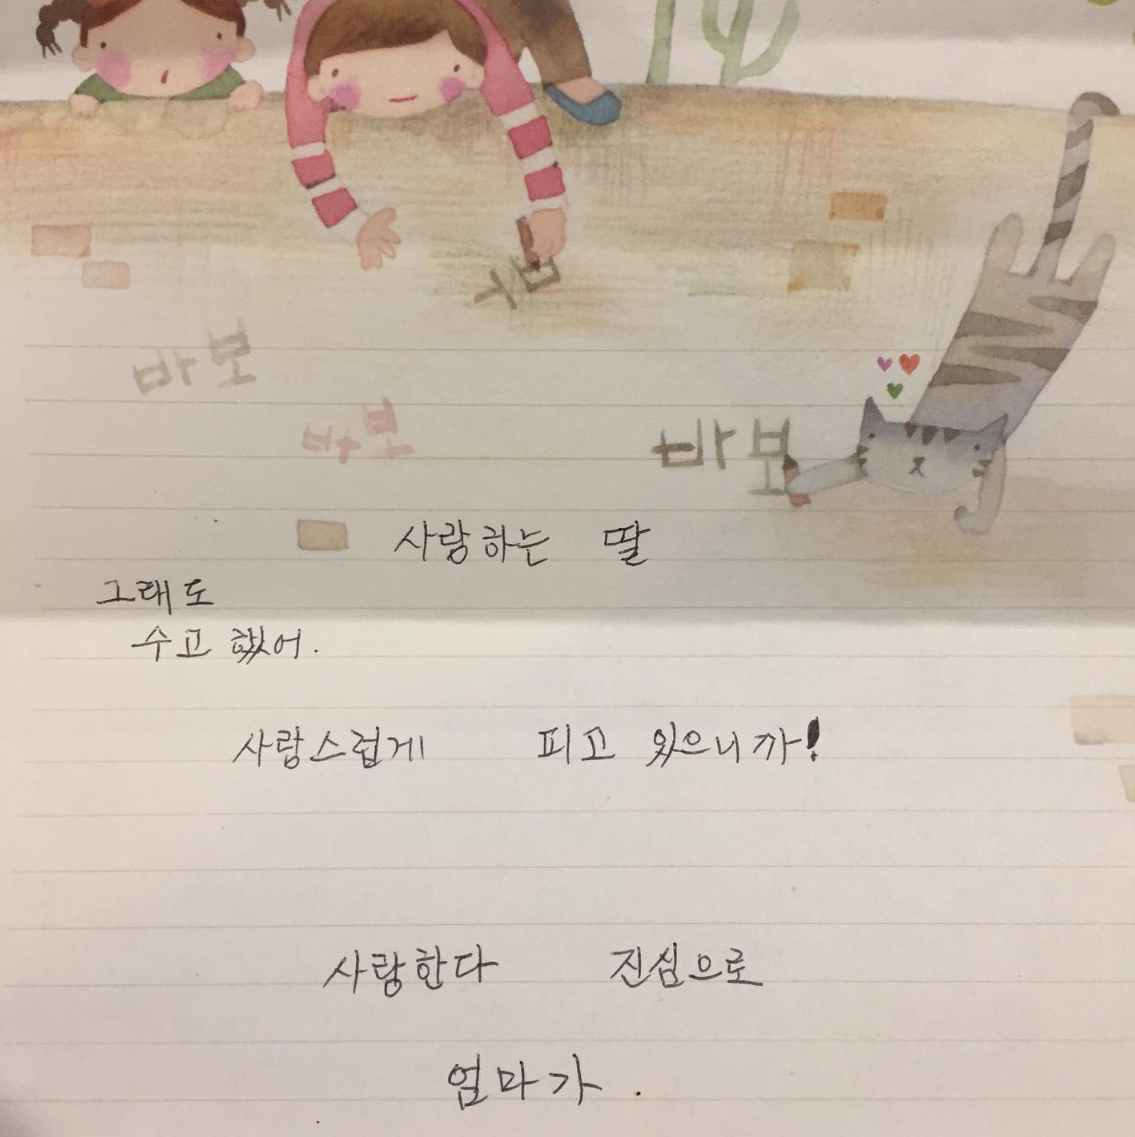 바보
바보
바보
사랑하는 딸
그래도
수고 했어.
사랑스럽게 피고 있으니까!
사랑한다 진심으로
엄마가.